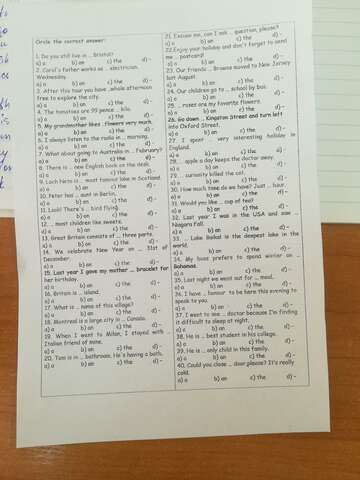 Circle the correct answer:
1. Do you still live in ... Bristol?
a) a b) an c) the d) –
2. Carol's father works as .. electrician.
Wednesday.
a) a b) an c) the d) –
3. After this tour you have ..whole afternoon
free to explore the city.
a) a b) an c) the d) –
4. The tomatoes are 99 pence .. kilo.
a) a b) an c) the d) –
5. My grandmother likes .. flowers very much.
a) a b) an c) the d) –
6. I always listen to the radio in .. morning.
a) a b) an c) the d) –
7. What about going to Australia in .. February?
a) a b) an c) the d) –
8. There is .. new English book on the desk.
a) a b) an c) the d) –
9. Loch Ness is .. most famous lake in Scotland.
a) a b) an c) the d) –
10. Peter has .. aunt in Berlin.
a) a b) an c) the d) –
11. Look! There's .. bird flying.
a) a b) an c) the d) –
12. .. most children like sweets.
a) a b) an c) the d) –
13. Great Britain consists of .. three parts.
a) a b) an c) the d) –
14. We celebrate New Year on .. 31st of
December.
a) a b) an c) the d) –
15. Last year I gave my mother .. bracelet for
her birthday.
a) a b) an c) the d) –
16. Britain is .. island.
a) a b) an c) the d) –
17. What is .. name of this village?
a) a b) an c) the d) –
18. Montreal is a large city in .. Canada.
a) a b) an c) the d) –
19. When I went to Milan, I stayed with ..
Italian friend of mine.
a) a b) an c) the d) –
20. Tom is in .. bathroom. He's having a bath.
a) a b) an c) the d) –
21. Excuse me, can I ask .. question, please?
a) a b) an c) the d) –
22.Enjoy your holiday and don't forget to send
me .. postcard!
a) a b) an c) the d) –
23. Our friends .. Browns moved to New Jersey
last August.
a) a b) an c) the d) –
24. Our children go to .. school by bus.
a) a b) an c) the d) –
25. .. roses are my favorite flowers.
a) a b) an c) the d) –
26. Go down .. Kingston Street and turn left
into Oxford Street.
a) a b) an c) the d) –
27. I spent .. very interesting holiday in
England.
a) a b) an c) the d) –
28. .. apple a day keeps the doctor away.
a) a b) an c) the d) –
29. .. curiosity killed the cat.
a) a b) an c) the d) –
30. How much time do we have? Just .. hour.
a) a b) an c) the d) –
31. Would you like .. cup of tea?
a) a b) an c) the d) –
32. Last year I was in the USA and saw ..
Niagara Fall.
a) a b) an c) the d) –
33. .. Lake Baikal is the deepest lake in the
world.
a) a b) an c) the d) –
34. My boss prefers to spend winter on ..
Bahamas.
a) a b) an c) the d) –
35. Last night we went out for .. meal.
a) a b) an c) the d) –
36. I have .. honour to be here this evening to
speak to you.
a) a b) an c) the d) –
37. I went to see .. doctor because I'm finding
it difficult to sleep at night.
a) a b) an c) the d) –
38. He is .. best student in his college.
a) a b) an c) the d) –
39. He is .. only child in this family.
a) a b) an c) the d) –
40. Could you close .. door please? It's really
cold.
a) a b) an c) the d) –